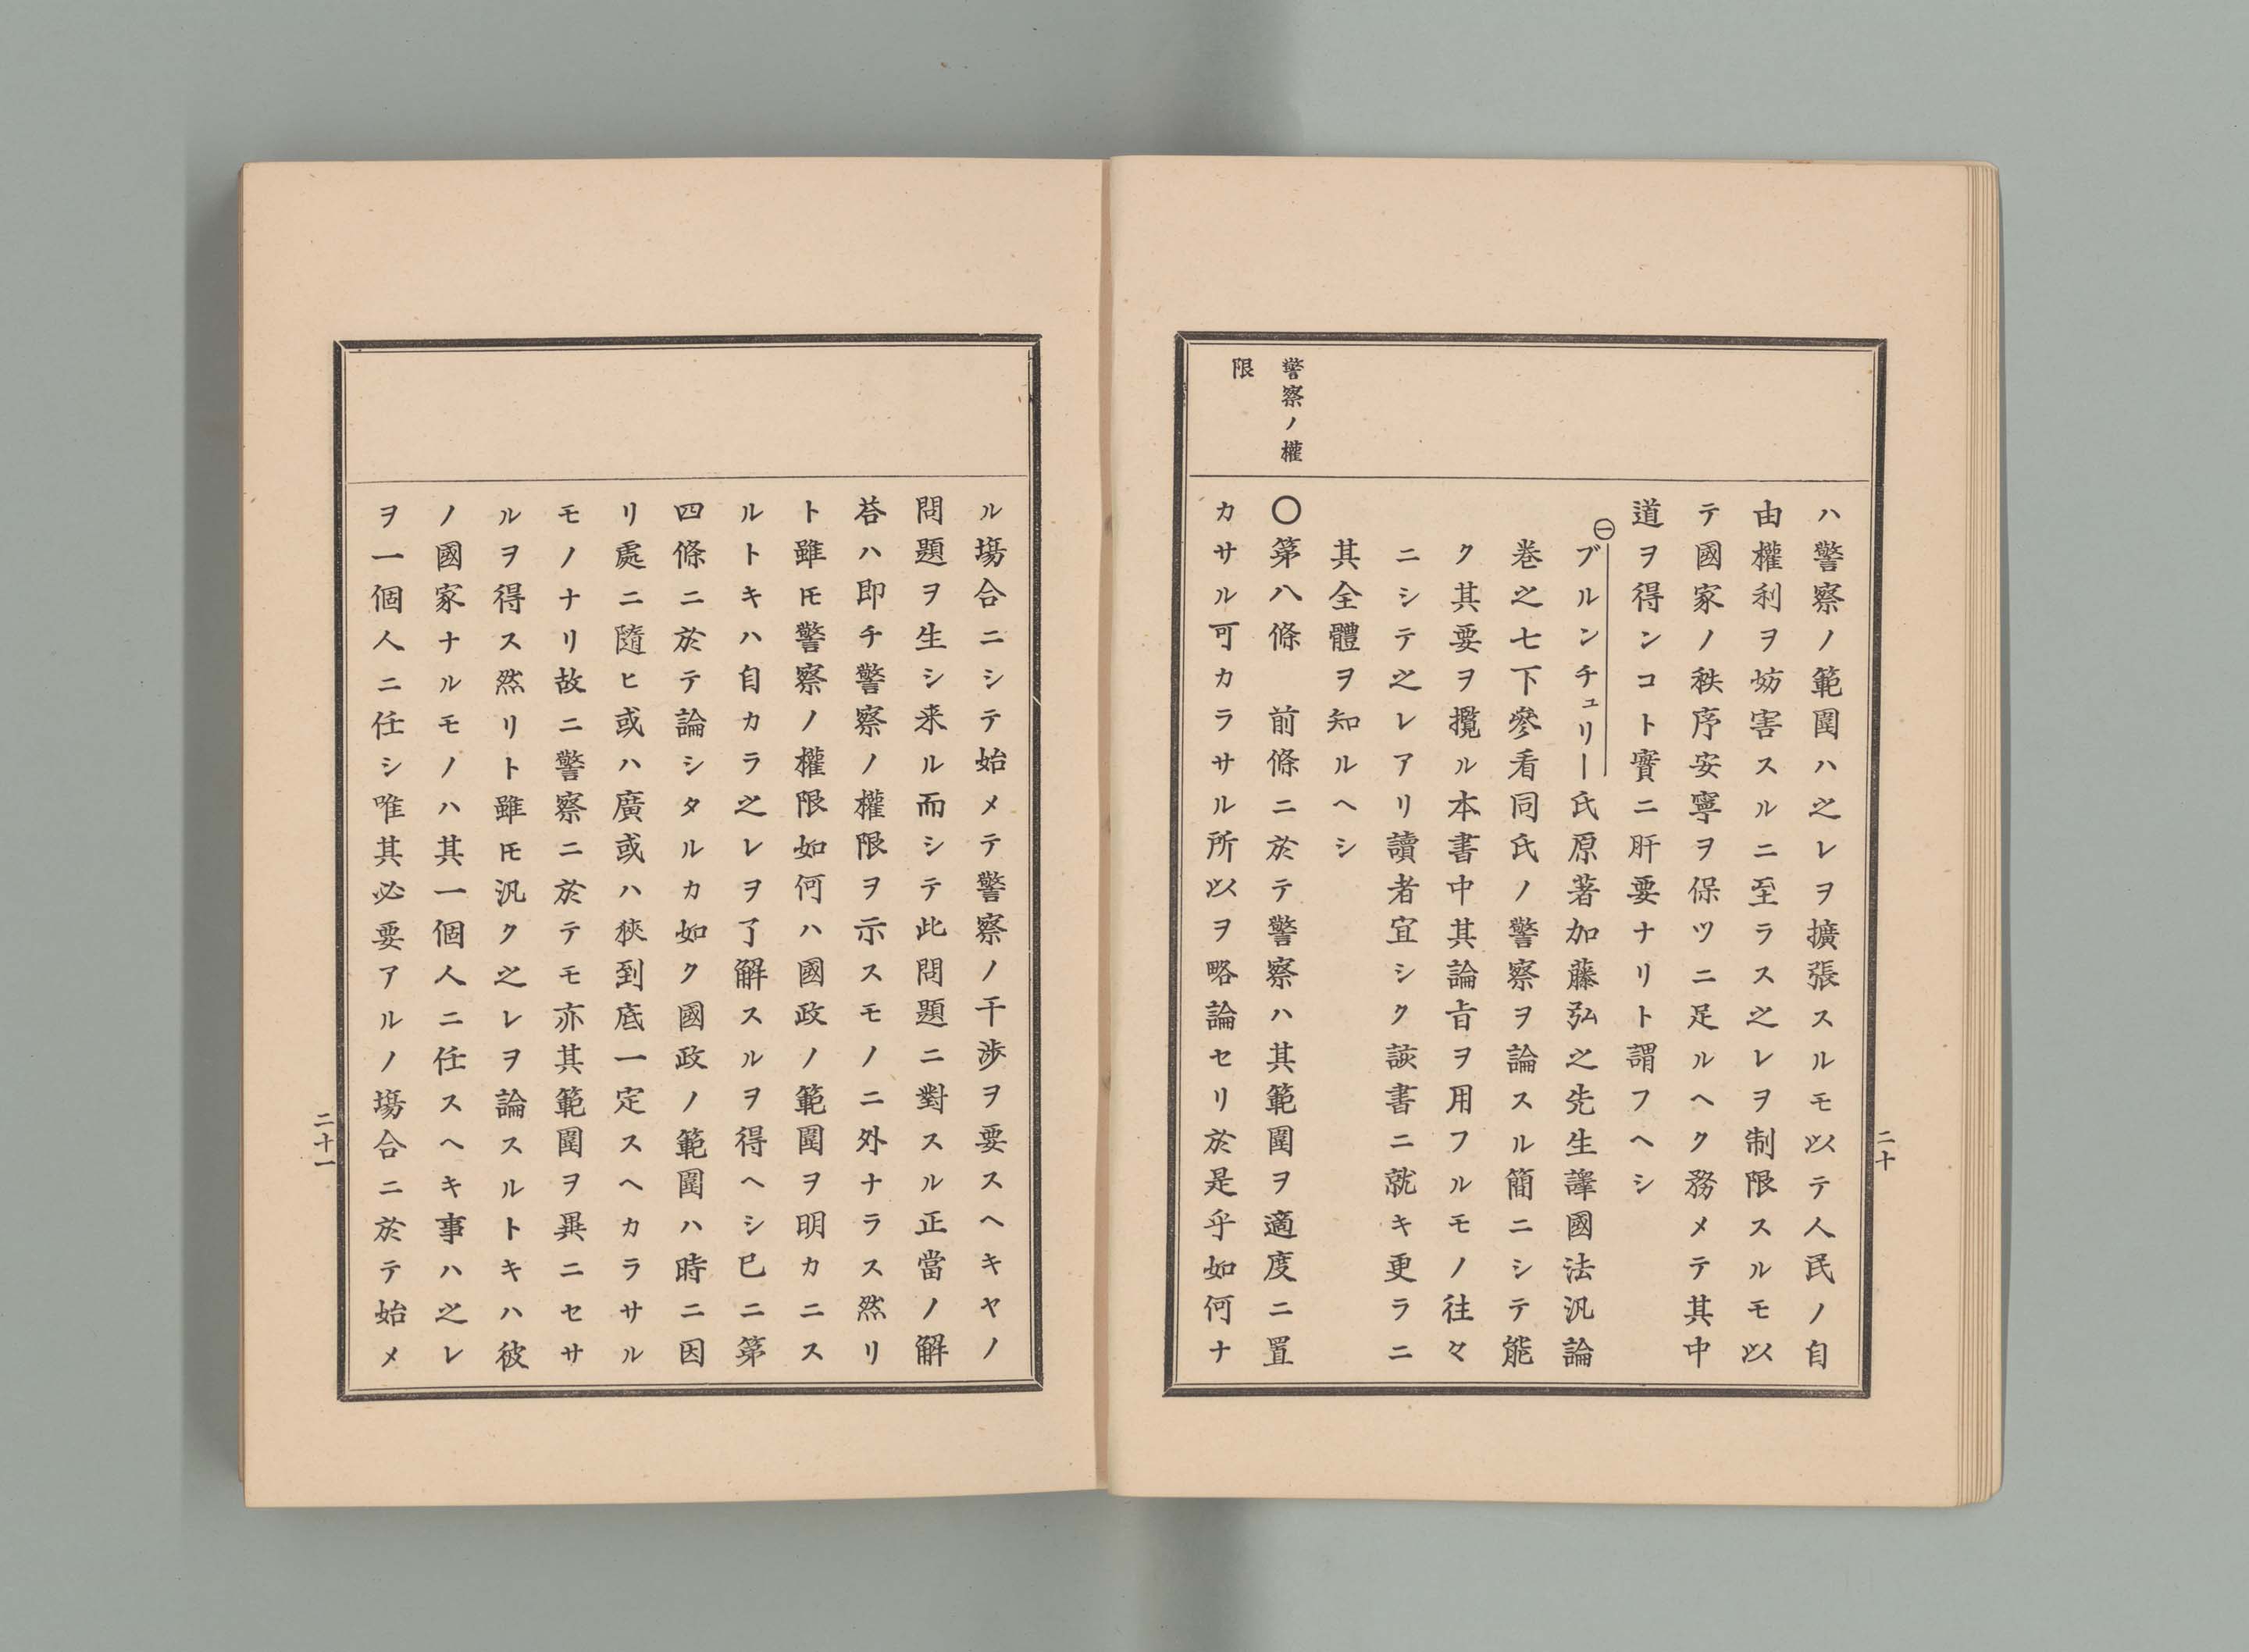 ハ警察ノ範圍ハ之レヲ擴張スルモ以テ人民ノ自
由權利ヲ妨害スルニ至ラス之レヲ制限スルモ以
テ國家ノ秩序安寧ヲ保ツニ足ルヘク務メテ其中
道ヲ得ンコト實ニ肝要ナリト謂フヘシ
㊀ブルンチュリー氏原著加藤弘之先生譯國法汎論
卷之七下參看同氏ノ警察ヲ論スル簡ニシテ能
ク其要ヲ攬ル本書中其論旨ヲ用フルモノ往々
ニシテ之レアリ讀者宜シク該書ニ就キ更ラニ
其全體ヲ知ルヘシ
警察ノ權
限
〇第八條 前條ニ於テ警察ハ其範圍ヲ適度ニ置
カサル可カラサル所以ヲ略論セリ於是乎如何ナ
二十
ル塲合ニシテ始メテ警察ノ干渉ヲ要スヘキヤノ
問題ヲ生シ来ル而シテ此問題ニ對スル正當ノ解
荅ハ即チ警察ノ權限ヲ示スモノニ外ナラス然リ
ト雖モ警察ノ權限如何ハ國政ノ範圍ヲ明カニス
ルトキハ自カラ之レヲ了解スルヲ得ヘシ已ニ第
四條ニ於テ論シタルカ如ク國政ノ範圍ハ時ニ因
リ處ニ隨ヒ或ハ廣或ハ狹到底一定スヘカラサル
モノナリ故ニ警察ニ於テモ亦其範圍ヲ異ニセサ
ルヲ得ス然リト雖モ汎ク之レヲ論スルトキハ彼
ノ國家ナルモノハ其一個人ニ任スヘキ事ハ之レ
ヲ一個人ニ任シ唯其必要アルノ塲合ニ於テ始メ
二十一